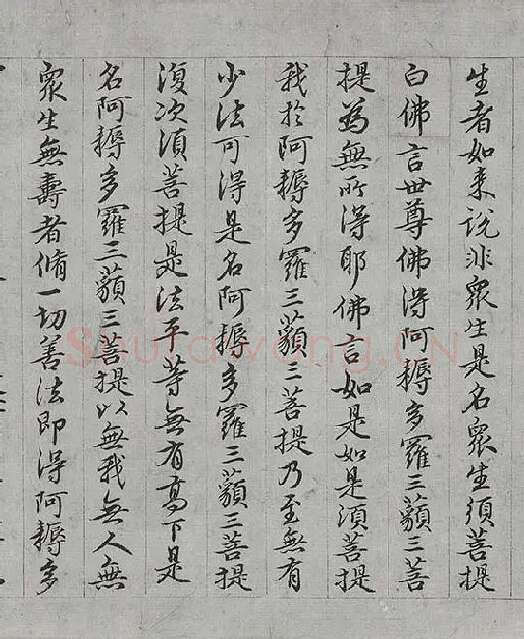 生者如来説非眾生是名眾生須菩提
白佛言世尊佛得阿耨多羅三藐三菩
提為無所得耶佛言如是如是須菩提
我於阿耨多羅三藐三菩提乃至無有
少法可得是名阿耨多羅三藐三菩提
復次須菩提是法平等無有高下是
名阿耨多羅三藐三菩提以無我無人無
眾生無壽者脩一切善法即得阿耨多